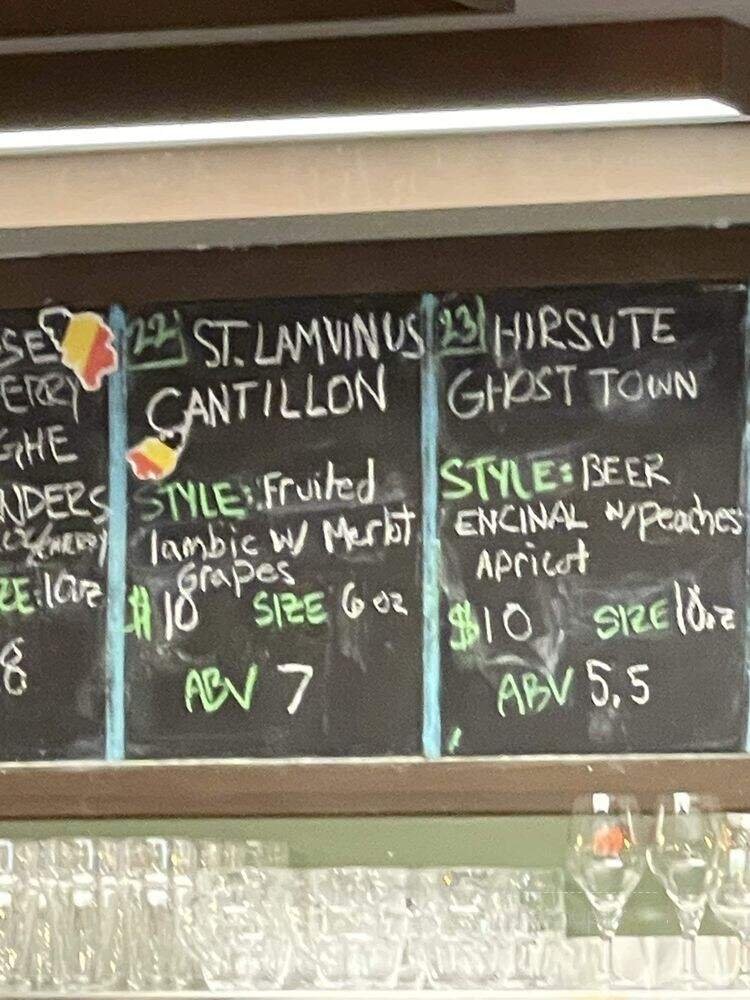 SE
ERRY
GHE
NDERS
ZE: 10oz
8
22 ST. LAMVINUS
CANTILLON
STYLE: Fruited
lambic w/ Merlot
grapes
$10 SIZE 6 oz
ABV 7
23 HIRSUTE
GHOST TOWN
STYLE: BEER
ENCINAL w/ peaches
Apricot
$10 SIZE 10oz
ABV 5.5